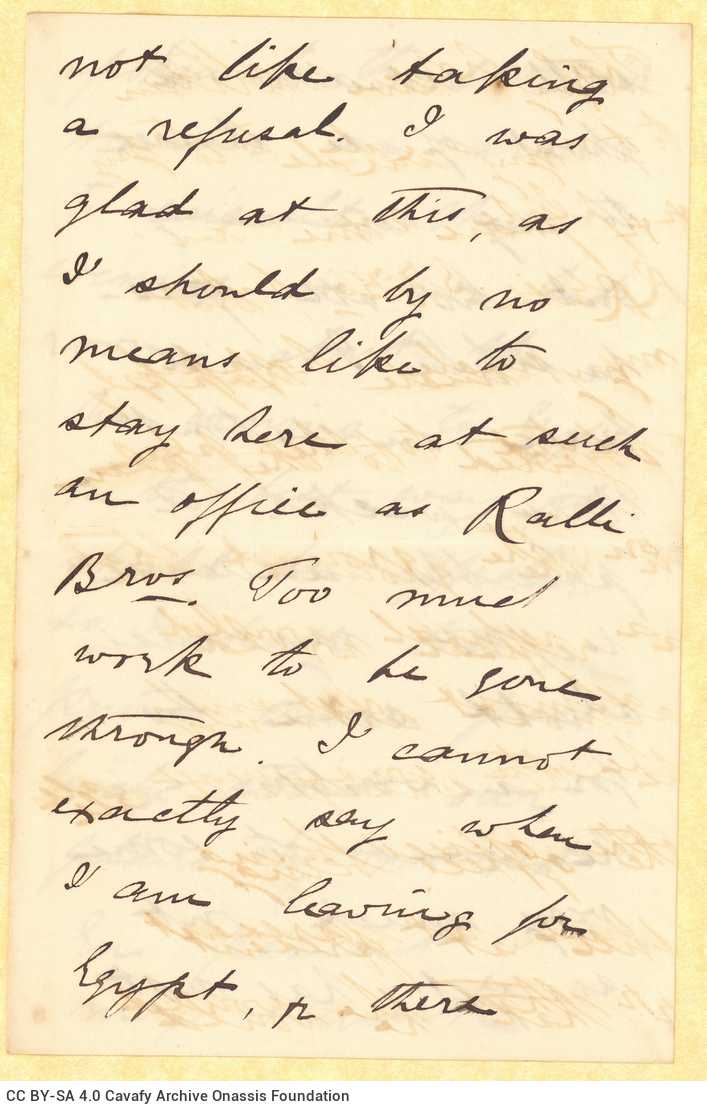 not like taking
a refusal. I was
glad at this, as
I should by no
means like to
stay here at such
an office as Ralli
Bros. Too much
work to be gone
through. I cannot
exactly say when
I am leaving for
Egypt, & there
CC BY-SA 4.0 Cavafy Archive Onassis Foundation